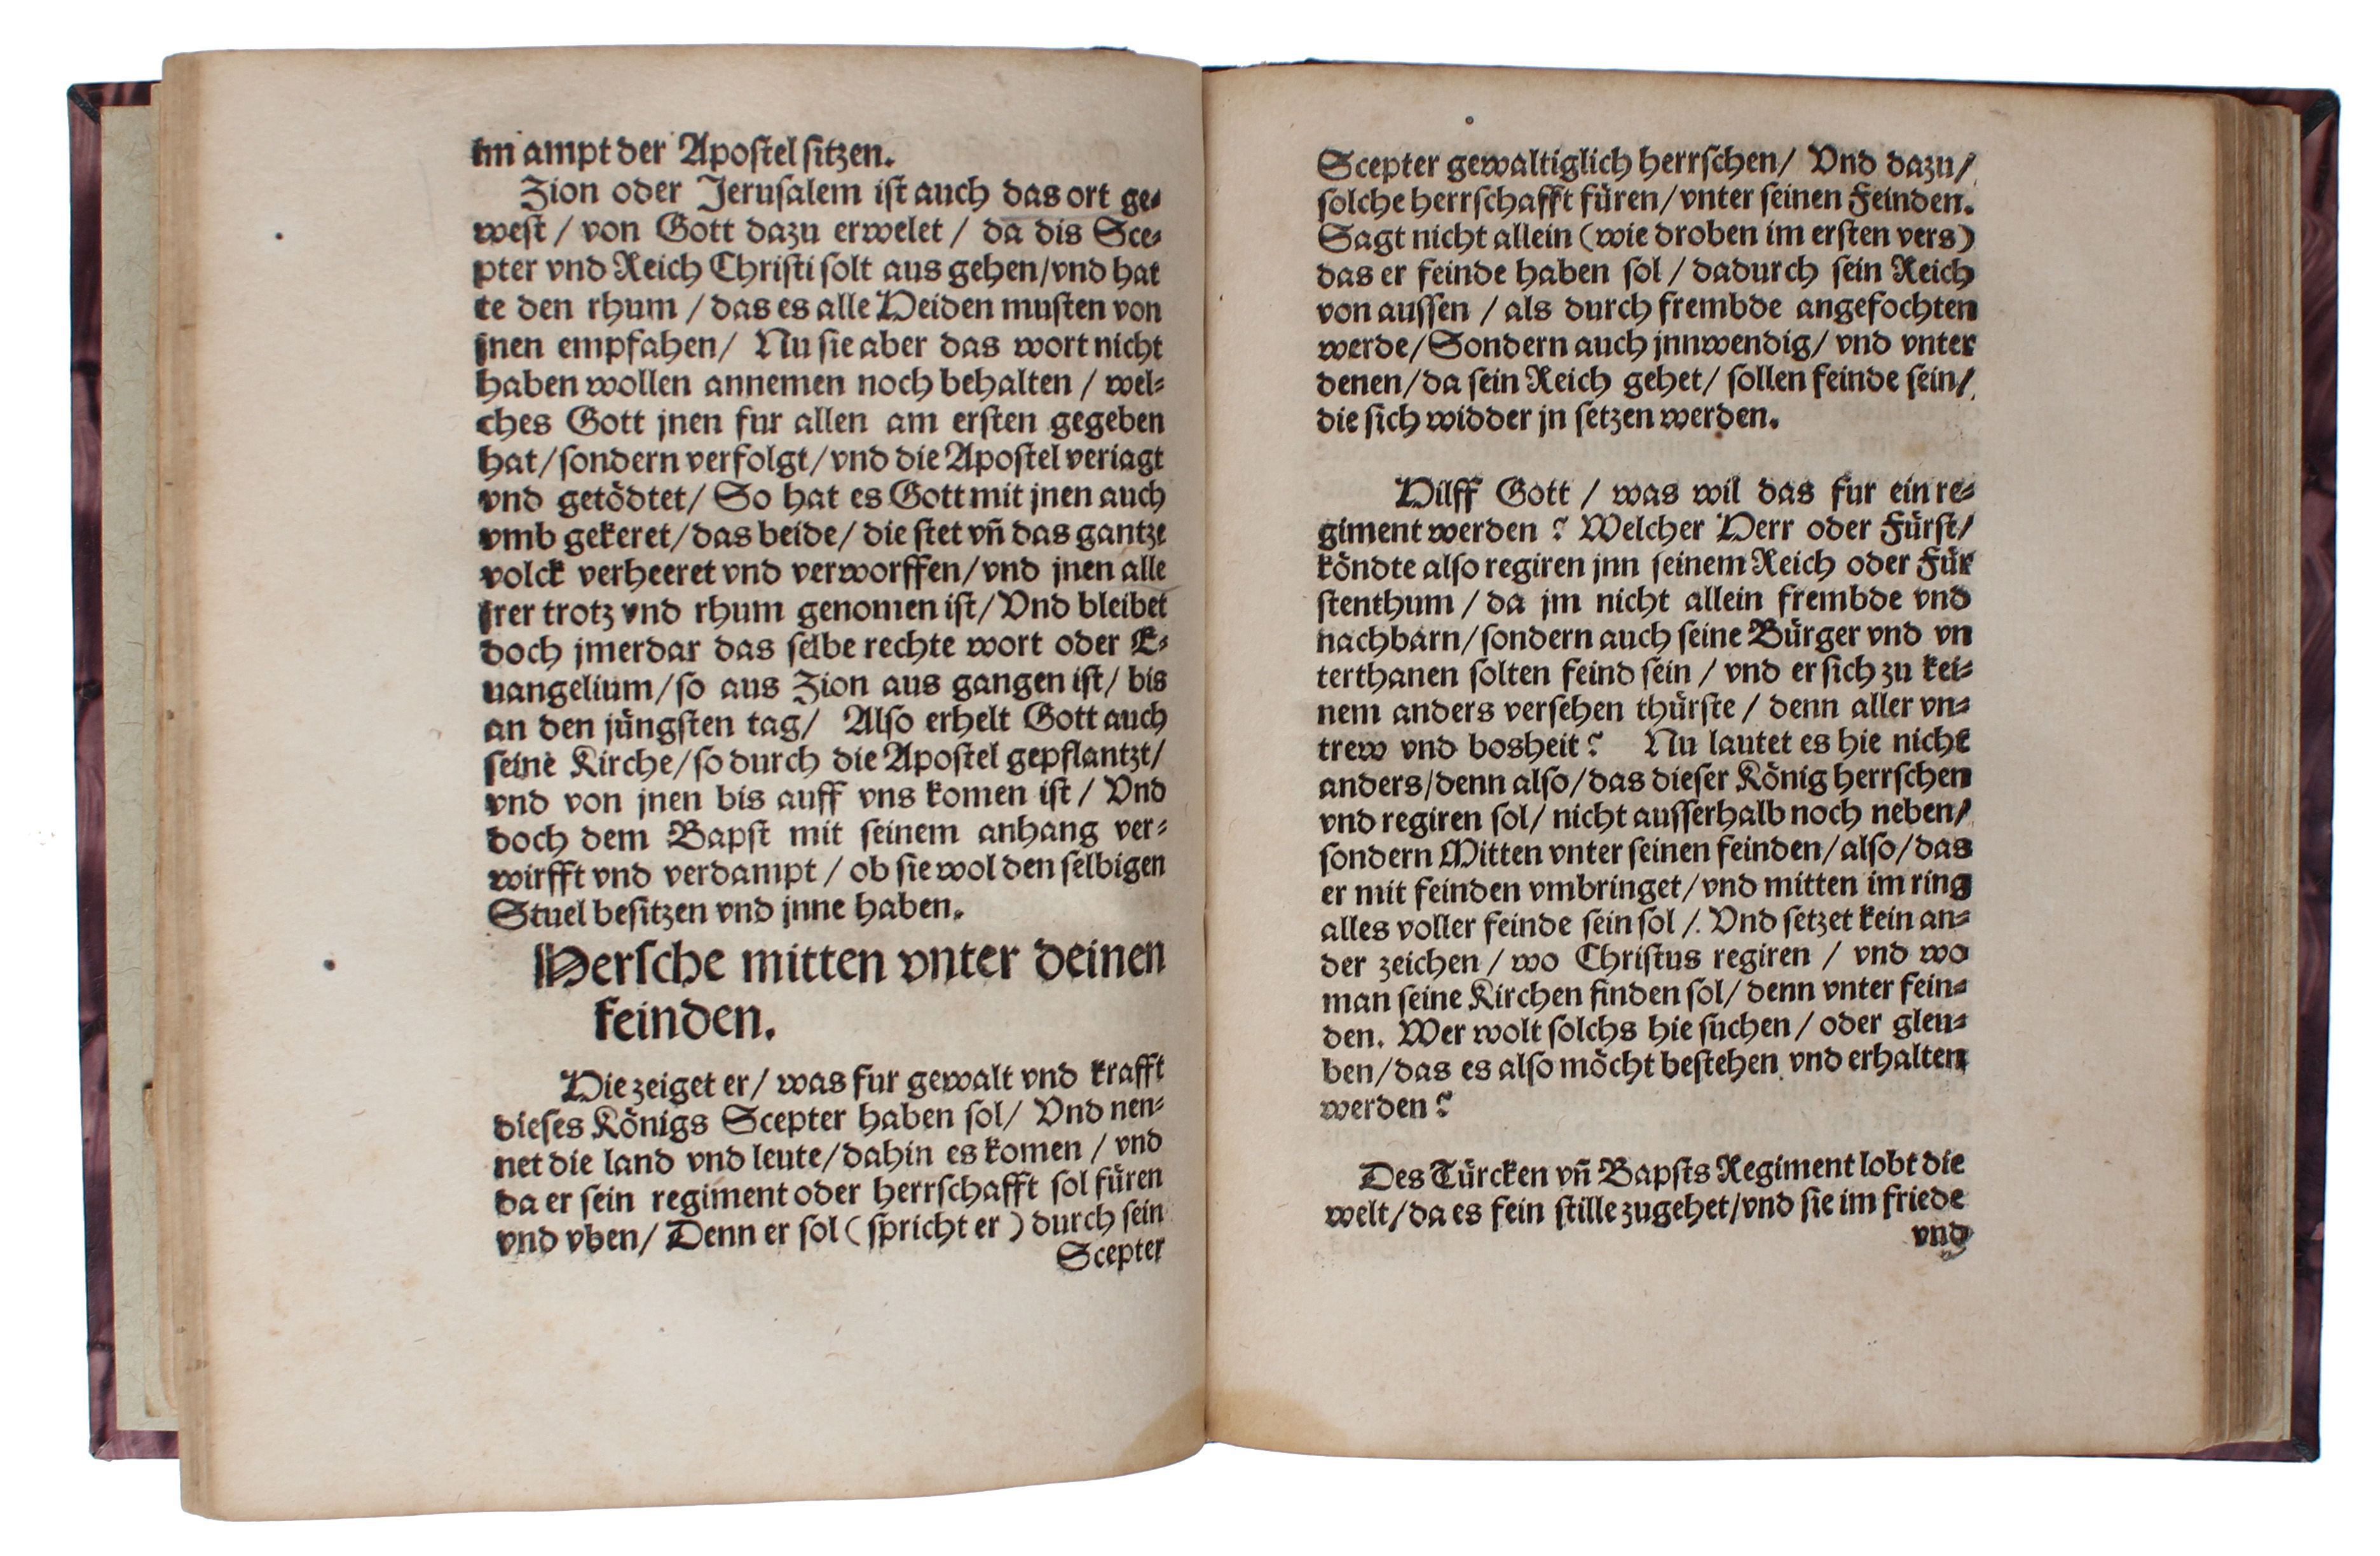 im ampt der Apostel sitzen.
Zion oder Jerusalem ist auch das ort ge-
west / von Gott dazu erwelet / da dis Sce-
pter vnd Reich Christi solt aus gehen/vnd hat
te den rhum / das es alle Heiden musten von
jnen empfahen/ Nu sie aber das wort nicht
haben wollen annemen noch behalten / wel-
ches Gott jnen fur allen am ersten gegeben
hat/sondern verfolgt/vnd die Apostel veriagt
vnd getödtet/ So hat es Gott mit jnen auch
vmb gekeret/das beide/ die stet vn̄ das gantze
volck verheeret vnd verworffen/vnd jnen alle
jrer trotz vnd rhum genomen ist/ Vnd bleibet
doch jmerdar das selbe rechte wort oder E-
uangelium/so aus Zion aus gangen ist/ bis
an den jüngsten tag/ Also erhelt Gott auch
seine Kirche/so durch die Apostel gepflantzt/
vnd von jnen bis auff vns komen ist / Vnd
doch dem Bapst mit seinem anhang ver-
wirfft vnd verdampt / ob sie wol den selbigen
Stuel besitzen vnd jnne haben.
Hersche mitten vnter deinen
feinden.
Hie zeiget er/ was fur gewalt vnd krafft
dieses Königs Scepter haben sol/ Vnd nen-
net die land vnd leute/dahin es komen / vnd
da er sein regiment oder herrschafft sol füren
vnd vben/ Denn er sol ( spricht er ) durch sein
Scepter
Scepter gewaltiglich herrschen/ Vnd dazu/
solche herrschafft füren/vnter seinen Feinden.
Sagt nicht allein (wie droben im ersten vers)
das er feinde haben sol / dadurch sein Reich
von aussen / als durch frembde angefochten
werde/Sondern auch jnnwendig/ vnd vnter
denen/da sein Reich gehet/ sollen feinde sein/
die sich widder jn setzen werden.
Hilff Gott / was wil das fur ein re-
giment werden ? Welcher Herr oder Fürst/
köndte also regiren jnn seinem Reich oder Für
stenthum / da jm nicht allein frembde vnd
nachbarn/sondern auch seine Bürger vnd vn
terthanen solten feind sein / vnd er sich zu kei-
nem anders versehen thürste / denn aller vn-
trew vnd bosheit ? Nu lautet es hie nicht
anders/denn also/das dieser König herrschen
vnd regiren sol/ nicht ausserhalb noch neben/
sondern Mitten vnter seinen feinden/also/das
er mit feinden vmbringet/vnd mitten im ring
alles voller feinde sein sol /. Vnd setzet kein an-
der zeichen / wo Christus regiren / vnd wo
man seine Kirchen finden sol/ denn vnter fein-
den. Wer wolt solchs hie suchen / oder gleu-
ben/das es also möcht bestehen vnd erhalten
werden ?
Des Türcken vn̄ Bapsts Regiment lobt die
welt/da es fein stille zugehet/vnd sie im friede
vnd